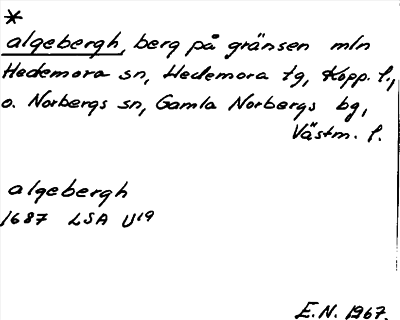 *
algebergh, berg på gränsen mln
Hedemora sn, Hedemora tg, Kopp. l.,
o. Norbergs sn, Gamla Norbergs bg,
Västm. l.
algebergh
1687 LSA U19
E.N. 1967.